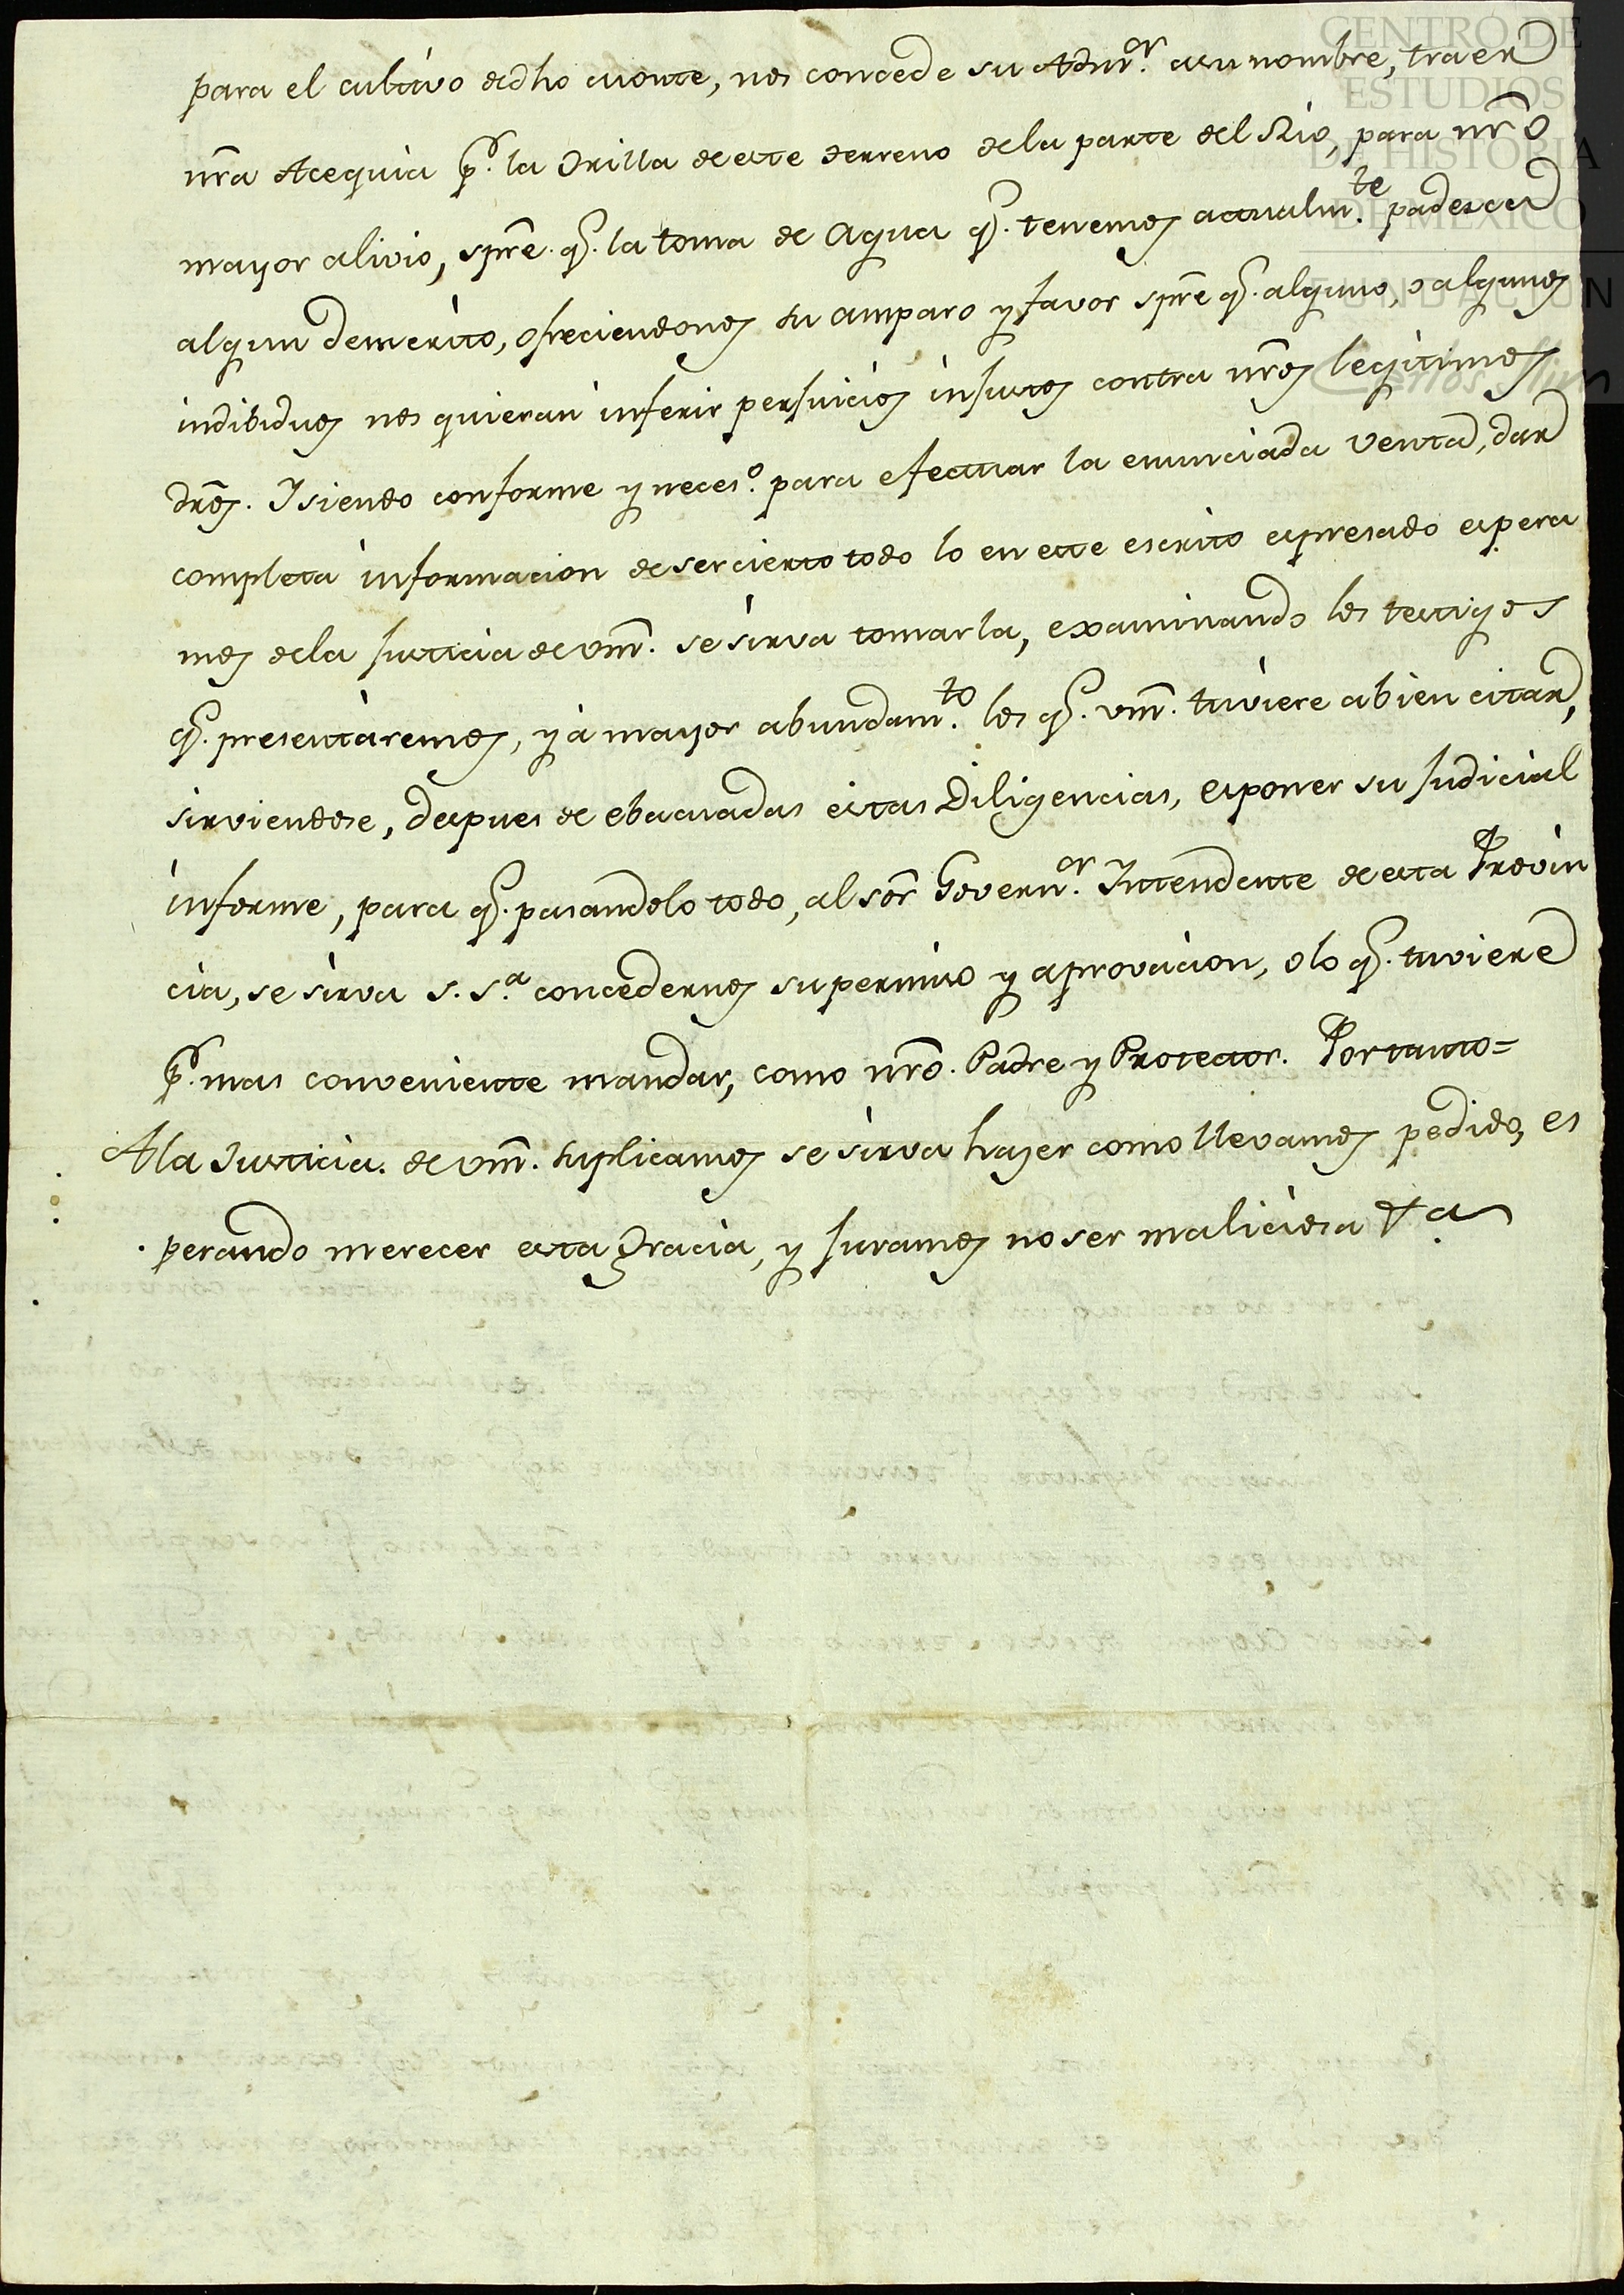 para el cultivo de dho monte, nos concede su Admor. a su nombre, traer
nra Acequia pr. la Orilla de este terreno de la parte del Rio, para nrô
mayor alivio, spre. qe. la toma de Agua qe. tenemos actualmte. padesca
algun demerito, ofreciendonos su amparo y favor spre qe. alguno, o algunos
indibiduos nos quieran inferir perjuicios injustos contra nros legitimos
dros. Y siendo conforme y neceso. para efectuar la enunciada venta, dar
completa informacion de ser cierto todo lo en este escrito espresado espera
mos de la justicia de vm. se sirva tomarla, examinando los testigos
qe. presentaremos, y a mayor abundamto. los qe. vm. tuviere abien citar,
sirviendose, despues de ebacuadas estas Diligencias, esponer su judicial
informe, para qe. pasandolo todo, al sor Governor. Intendente de esta Provin
cia, se sirva S. Sa. concedernos su permiso y aprovacion, o lo qe. tuviere
pr. mas conveniente mandar, como nro. Padre y Protector. Por tanto=
A la Justicia. de vm. suplicamos se sirva hazer como llevamos pedido, es
perando merecer esta Gracia, y juramos no ser maliciosa &a.
CENTRO DE
ESTUDIOS
DE HISTORIA
DE MÉXICO
FUNDACIÓN
Carlos Slim